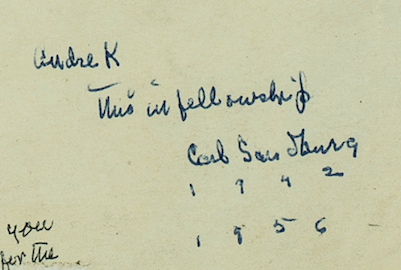 Andre K
This in fellowship
Carl Sandburg
1 9 4 2
1 9 5 6
you
for the